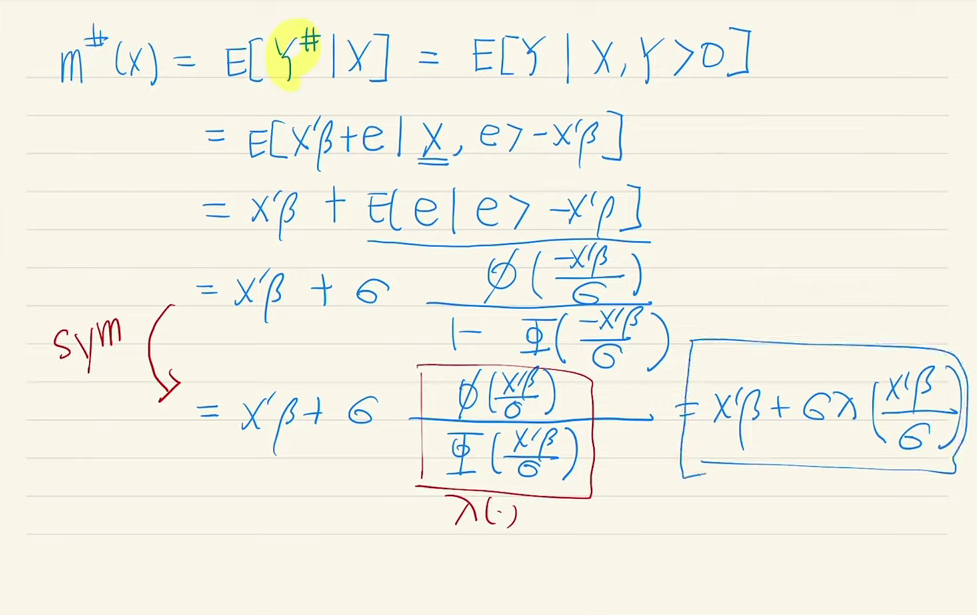 m^#(X) = E[Y^# | X] = E[Y | X, Y > 0]
= E[X'β + e | X, e > -X'β]
= X'β + E[e | e > -X'β]
= X'β + σ φ(-X'β/σ) / 1 - Φ(-X'β/σ)
sym
= X'β + σ φ(X'β/σ) / Φ(X'β/σ) = X'β + σλ(X'β/σ)
λ(·)